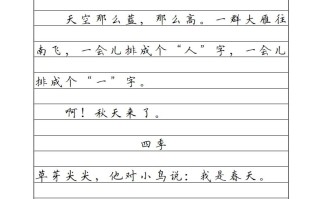 天空那么蓝，那么高。一群大雁往
南飞，一会儿排成个“人”字，一会儿
排成个“一”字。
啊！秋天来了。
四季
草芽尖尖，他对小鸟说：我是春天。